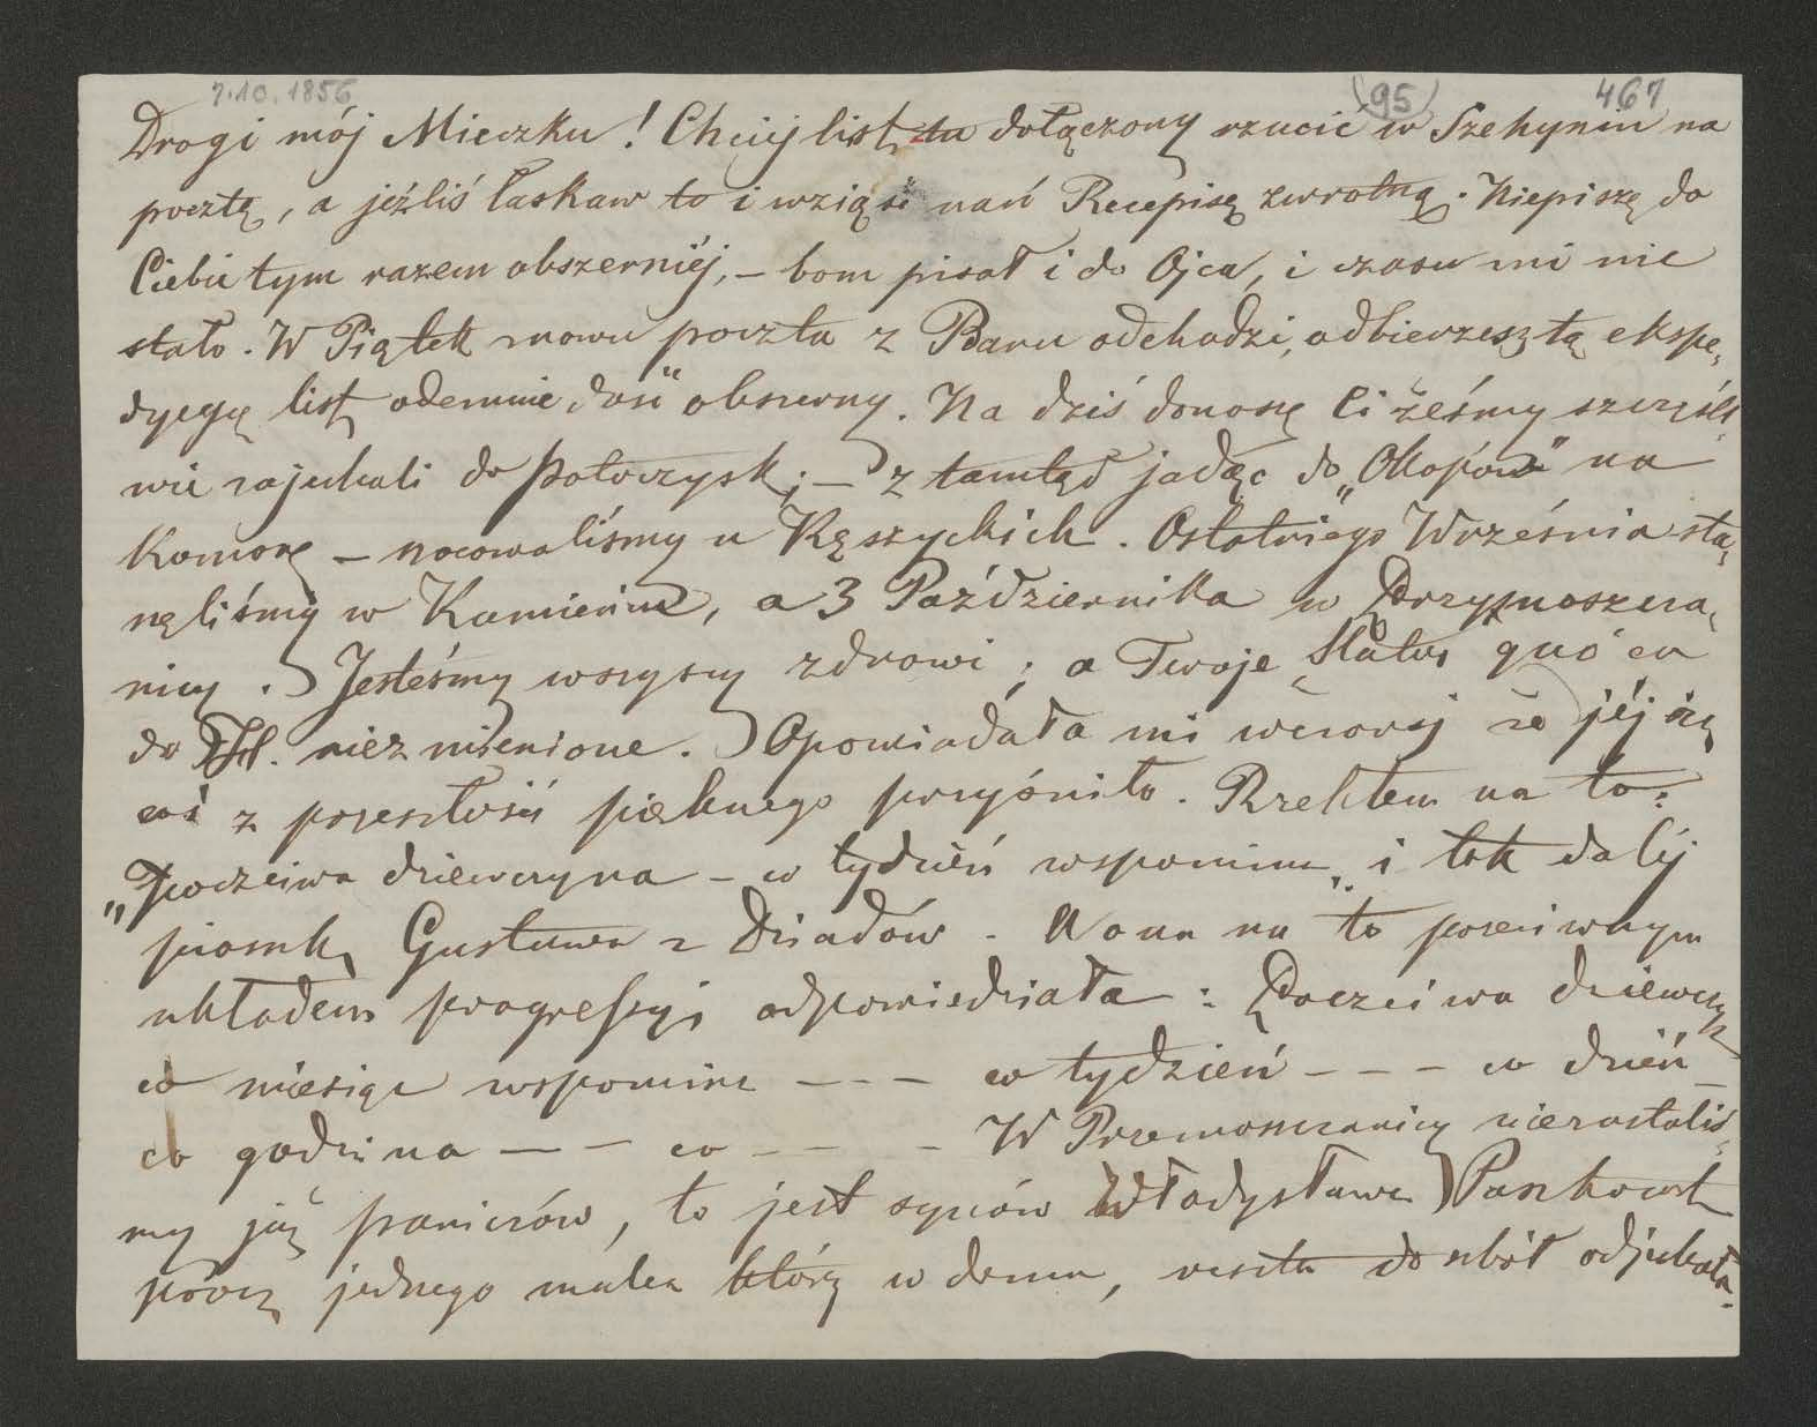 7.10.1856 (95) 467
Drogi mój Mieczku! Chciéj list tu dołączony rzucić w Szehyniu na
pocztę, a jeźliś łaskaw to i wziąść nań Recepisę zwrotną. Niepiszę do
Ciebie tym razem obszerniéj, – bom pisał i do Ojca, i czasu mi nie
stało. W Piątek znowu poczta z Baru odchodzi, odbierzesz tą ekspe,
dycyę list odemnie dość obszerny. Na dziś donoszę Ci żeśmy szczęśli,
wie zajechali do Potoczysk; – z tamtąd jadąc do „Okopów" na
Komorę – nocowaliśmy u Kęszyckich. Ostatniego Września sta,
nęliśmy w Kamieńcu, a 3 Października w Przymoszcza,
nicy. Jesteśmy wszyscy zdrowi; a Twoje Status quo co
do H. niezmienione. Opowiadała mi wczoraj że jéj się
coś z przeszłości pięknego przyśniło. Rzekłem na to:
„Poczciwa dziewczyna – co tydzień wspomina" i tak daléj
piosnkę Gustawa z Dziadów. A ona na to przeciwnym
układem progressyi odpowiedziała: Poczciwa dziewczy
co miesiąc wspomina – – – co tydzień – – – co dzień –
co godzina – – – co – – – W Przemoszczanicy niezastaliś,
my już paniczów, to jest synów Władysława Paszkowsk
prócz jednego malca który w domu, reszta do szkół odjechała.